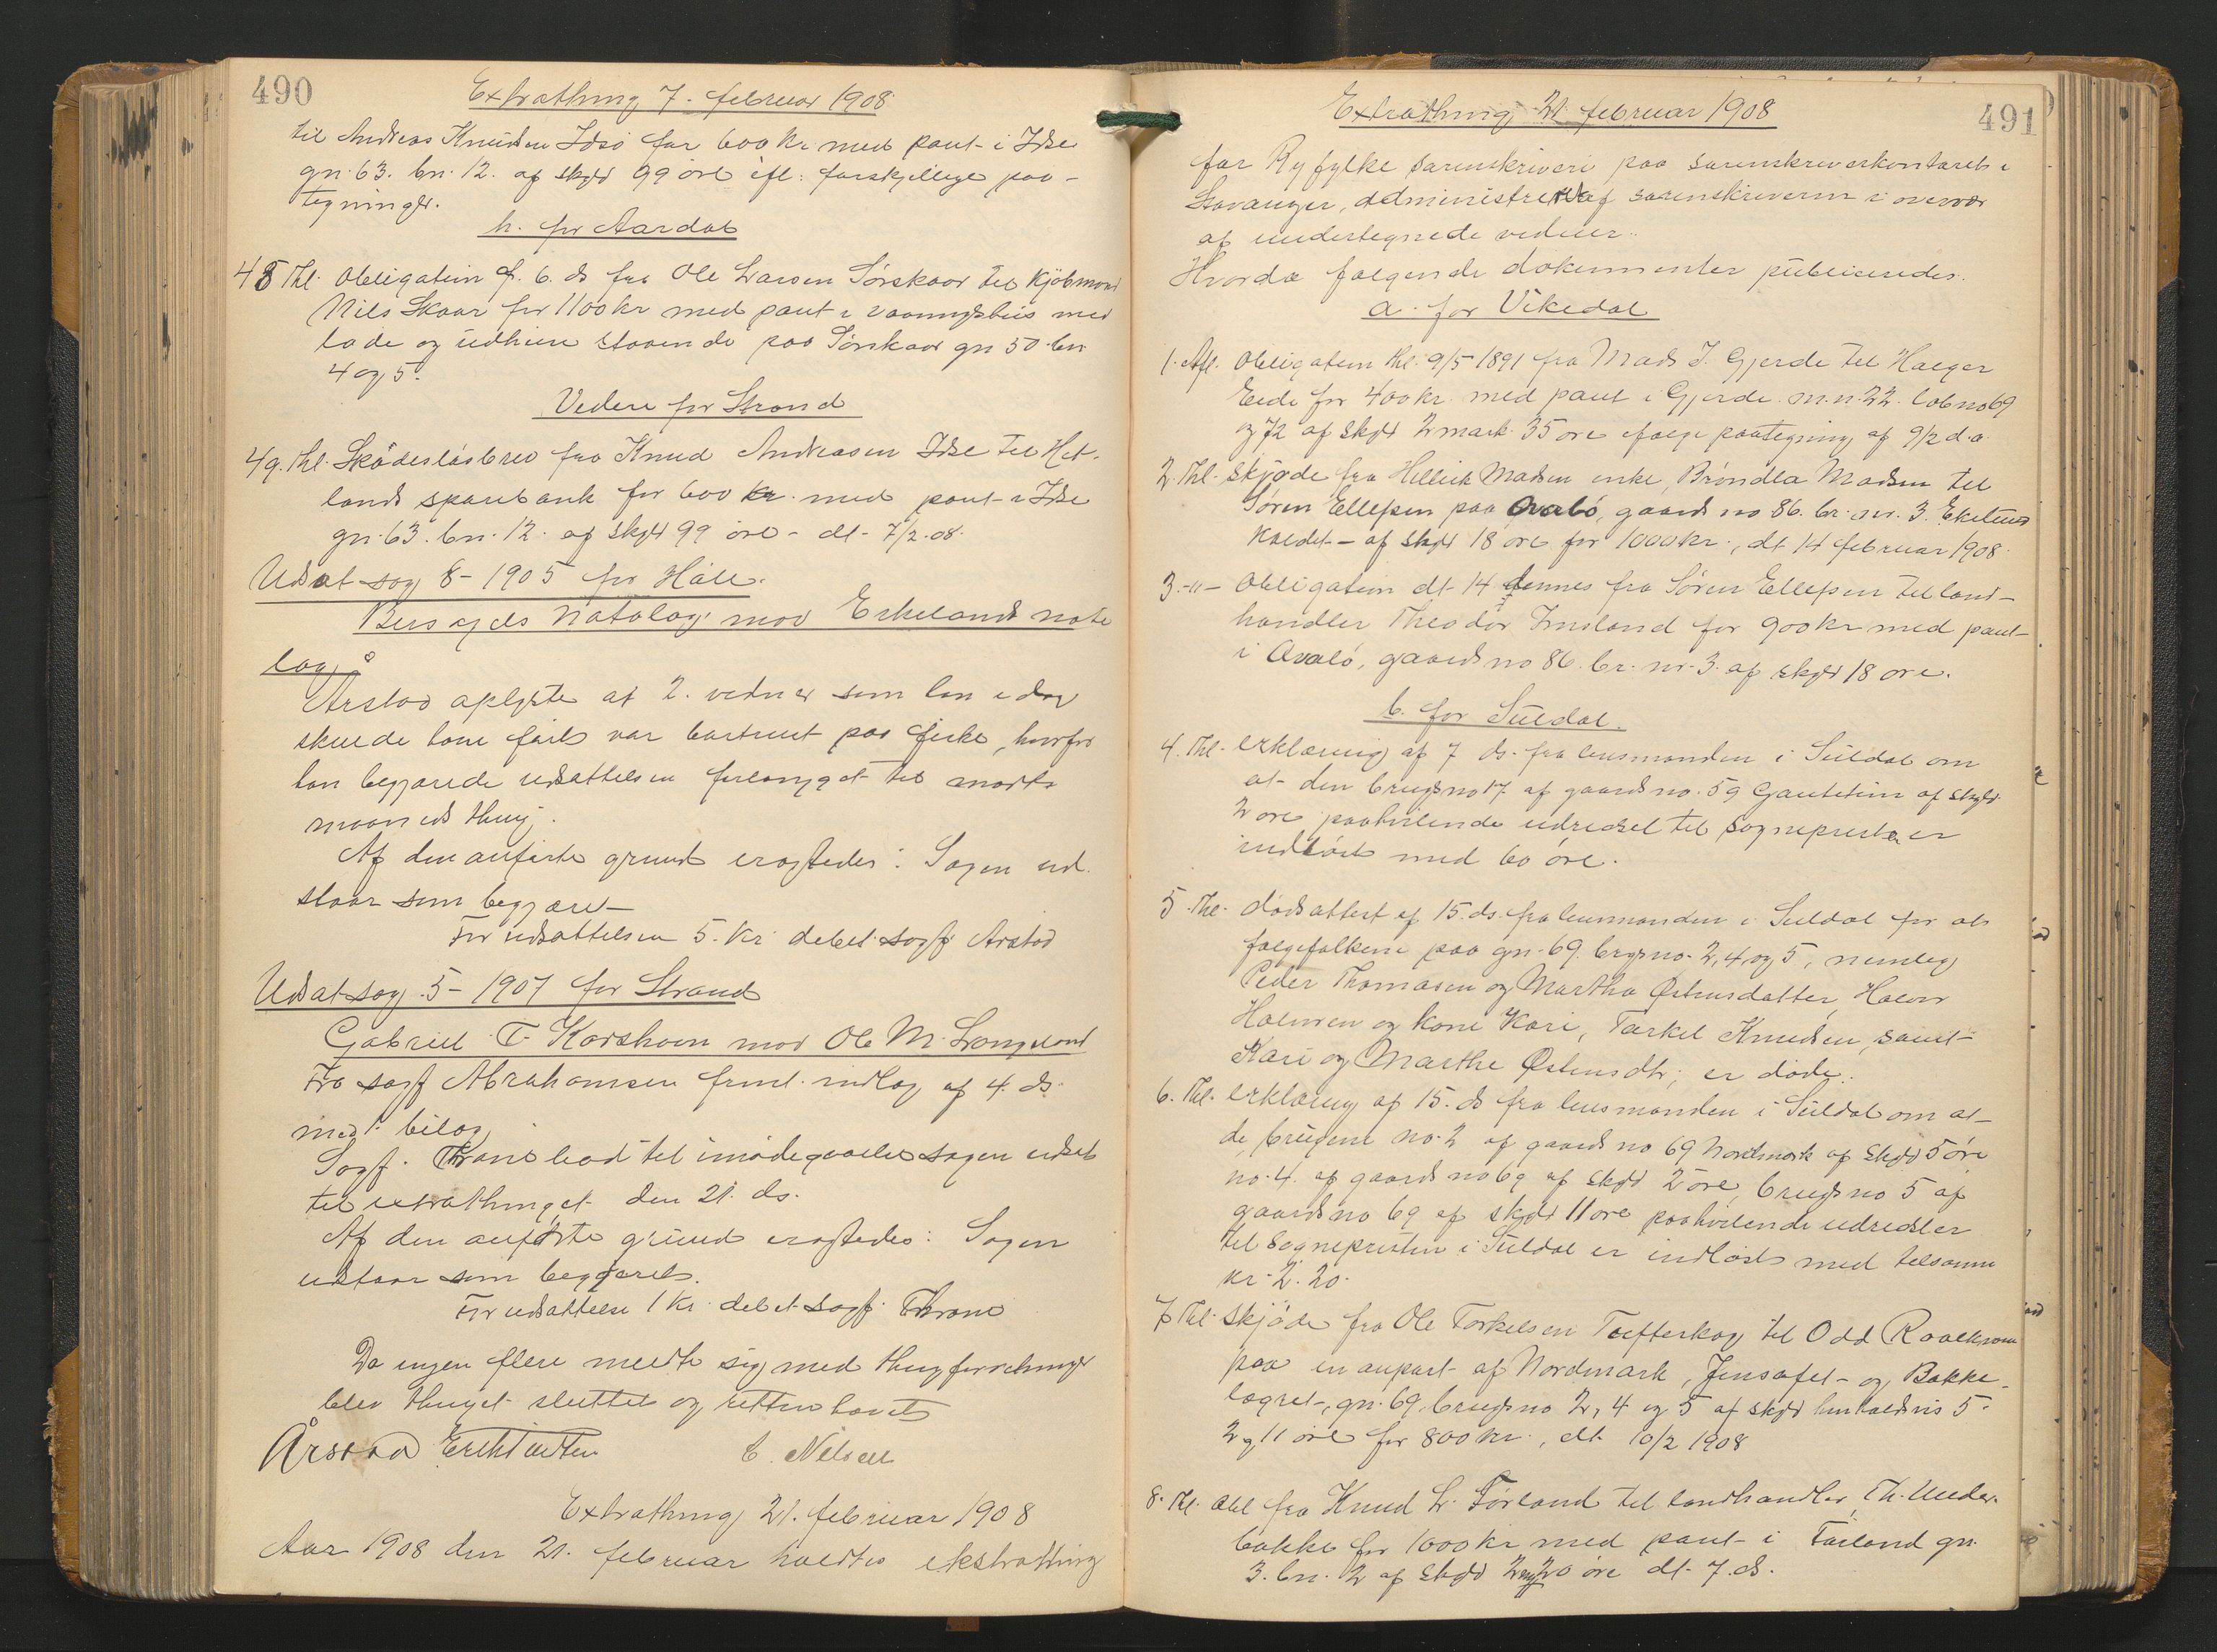 490
Extrathing 7. februar 1908
til Andreas Knudsen Idsø for 600 kr med pant i Idse
gn. 63. bn. 12. af skyld 99 øre ifl. forskjellige paa-
tegninger.
h. for Aardal
48 Thl. Obligation af 6. ds fra Ole Larsen Sørskaar til kjøbmand
Nils Skaar for 1100 kr med pant i vaaningshus med
lade og udhuse staaende paa Sørskaar gn 50 bn
4 og 5.
Videre for Strand
49. Thl. Skadesløsbrev fra Knud Andreasen Idse til Het-
lands sparebank for 600 kr. med pant i Idse
gn. 63. bn. 12. af skyld 99 øre - dt. 7/2. 08.
Udsat sag 8 - 1905 for Hâle.
notalag mod Erkelands nota
lag
Årstad oplyste at 2. vidner som han idag
skulde have ført var bortreist paa fiske, hvorfor
han begjærede udsættelsen forlænget til marts
maaneds thing.
Af den anførte grund eragtedes: Sagen ud-
staar som begjæret
For udsættelsen 5. kr debet sagf Årstad
Udsat sag 5 - 1907 for Strand
Gabriel T. Korshavn mod Ole M. Longeland
Fra sagf Abrahamsen freml. indlæg af 4. ds.
med 1 bilag
Sagf. Thrane bad til imødegaaelse sagen udsat
til extrathinget den 21. ds.
Af den anførte grund eragtedes: Sagen
udstaar som begjæret.
For udsættelse 1 kr. debet sagf. Thrane
Da ingen flere meldte sig med thingforretninger
blev thinget sluttet og retten hævet
Årstad Erik C. Nilsen
Extrathing 21. februar 1908
Aar 1908 den 21. februar holdtes ekstrathing
Extrathing 21 februar 1908
491
for Ryfylke sorenskriveri paa sorenskriverkontoret i
Stavanger, administreret af sorenskriveren i overvær
af undertegnede vidner.
Hvorda følgende dokumenter publiceredes.
a. for Vikedal
1. Afl. Obligation thl. 9/5 1891 fra Mads J. Gjerde til Holger
Eide for 400 kr. med pant i Gjerde m.n. 22. lob no 69
og 72 af skyld 2 mark 35 øre ifølge paategning af 9/2 d.a.
2. Thl. skjøde fra Hellik Madsen enke, Brøndla Madsen til
Søren Ellefsen paa Øvabø, gaards no 86. br. nr. 3. Ekelund
kaldet - af skyld 18 øre for 1000 kr., dt 14 februar 1908.
3. -"- Obligation dt. 14 dennes fra Søren Ellefsen til land-
handler Theodor Imsland for 900 kr med pant
i Øvabø, gaards no 86. br. nr. 3. af skyld 18 øre.
b. for Suldal.
4. Thl. erklæring af 7 ds. fra lensmanden i Suldal om
at den brugs no 17 af gaards no. 59 Gautetun af skyld
2 øre paahvilende udredsel til sognepresten er
indløst med 60 øre.
5. Thl. dødsattest af 15. ds. fra lensmanden i Suldal for at
følgefolkene paa gn. 69. brgs no. 2, 4, og 5, nemlig
Peder Thomasen og Martha Østensdatter, Halvor
Halvorsen og kone Kari, Tarkel Knudsen, samt
Kari og Marthe Østensdtr, er døde.
6. Thl. erklæring af 15. ds fra lensmanden i Suldal om at
de brugene no. 2 af gaards no 69 Nordmork af skyld 5 øre
no. 4. af gaards no 69 af skyld 2 øre, brugs no 5 af
gaards no 69 af skyld 11 øre paahvilende udredsler
til sognepresten i Suldal er indløst med tilsammen
kr. 2. 20.
7. Thl. skjøde fra Ole Torkelsen Tufteskog til Odd
paa en anpart af Nordmark, Jensafet- og Bakke-
lægret, gn. 69. brugs no 2, 4 og 5 af skyld henholdsvis 5.
2 og 11 øre for 800 kr., dt. 10/2 1908
8. Thl. obl fra Knud L. Førland til landhandler Th. Under-
bakke for 1000 kr med pant i Førland gn.
3. bn. 2 af skyld 2 mrk 20 øre dt. 7. ds.